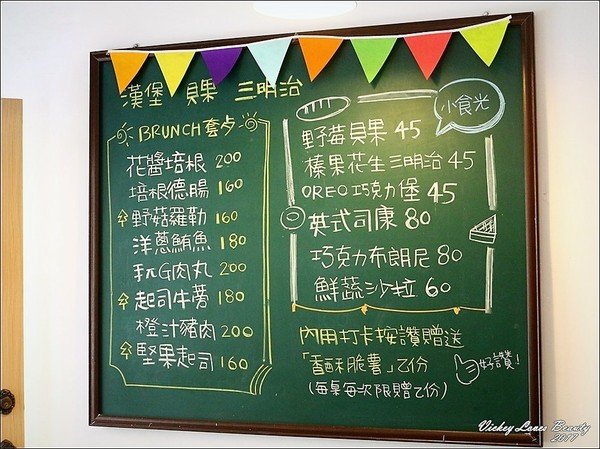 漢堡 貝果 三明治
BRUNCH套夕
花醬培根 200
培根德腸 160
野菇羅勒 160
洋蔥鮪魚 180
玩G肉丸 200
起司牛蒡 180
橙汁豬肉 200
堅果起司 160
小食光
野莓貝果 45
榛果花生三明治 45
OREO巧克力堡 45
英式司康 80
巧克力布朗尼 80
鮮蔬沙拉 60
內用打卡按讚贈送
「香酥脆薯」乙份
(每桌每次限贈乙份)
好讚!
Vickey Loves Beauty
2017